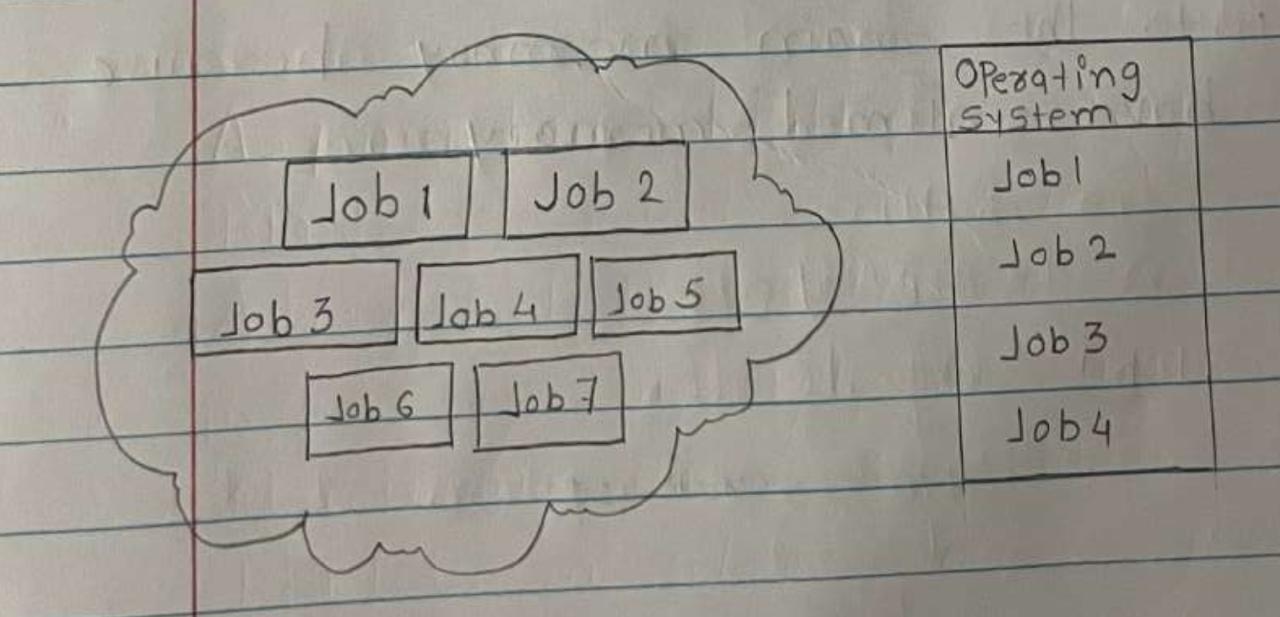 Job 1 Job 2
Job 3 Job 4 Job 5
Job 6 Job 7
Operating
System
Job 1
Job 2
Job 3
Job 4